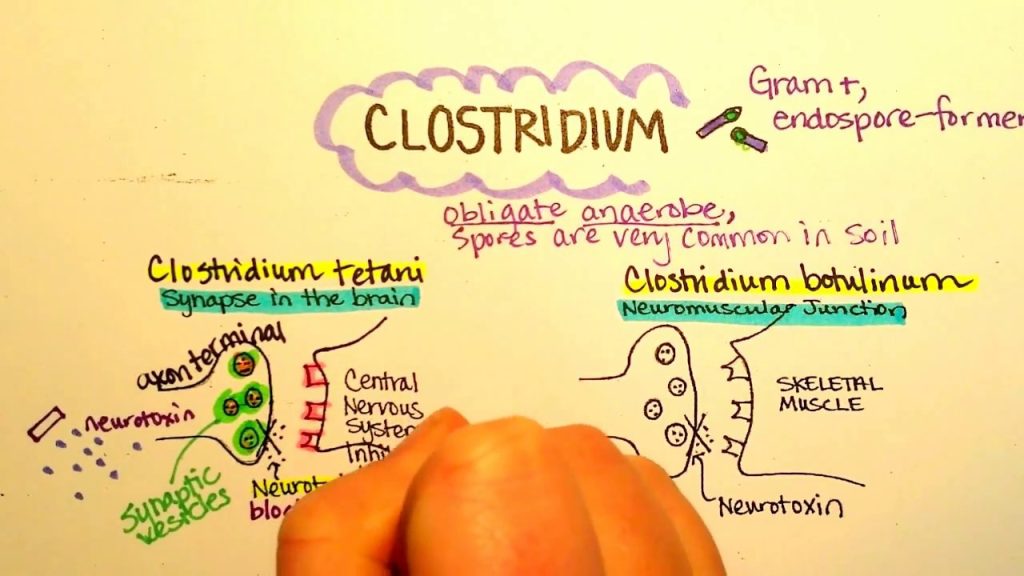 CLOSTRIDIUM
Gram +,
endospore-former
Obligate anaerobe,
Spores are very common in Soil
Clostridium tetani
Synapse in the brain
axon terminal
neurotoxin
Synaptic
vesicles
Central
Nervous
System
Clostridium botulinum
Neuromuscular Junction
SKELETAL
MUSCLE
Neurotoxin